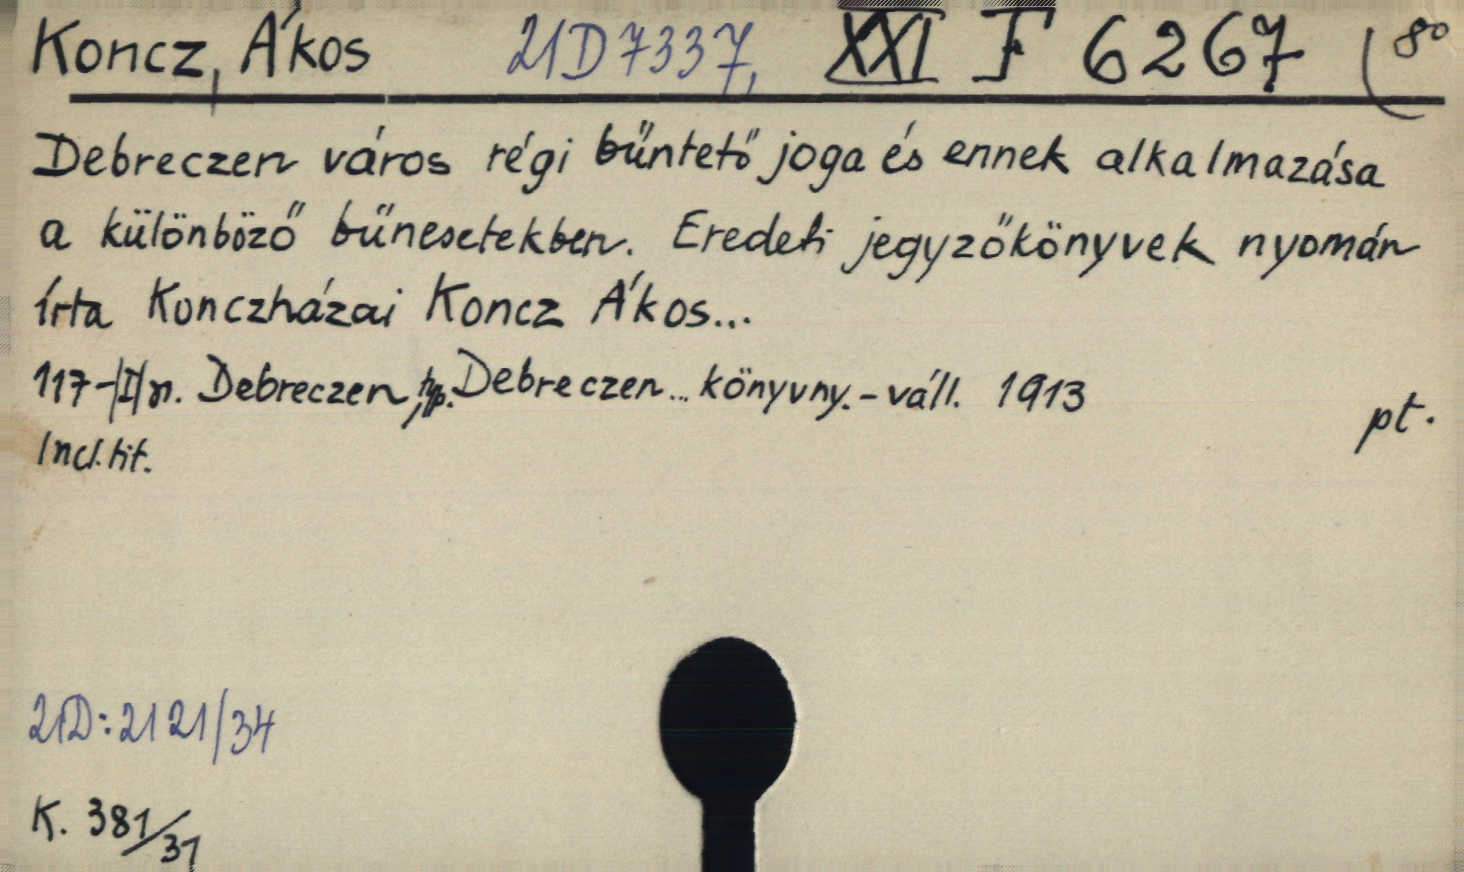 Koncz, Ákos 21D7337, XXI F 6267 (8°
Debreczen város régi büntető joga és ennek alkalmazása
a különböző bűnesetekben. Eredeti jegyzőkönyvek nyomán
írta Konczházai Koncz Ákos...
117-/I/n. Debreczen, typ. Debreczen... könyvny.-váll. 1913
pt.
Incl. tit.
21D: 2121/34
K. 381/31